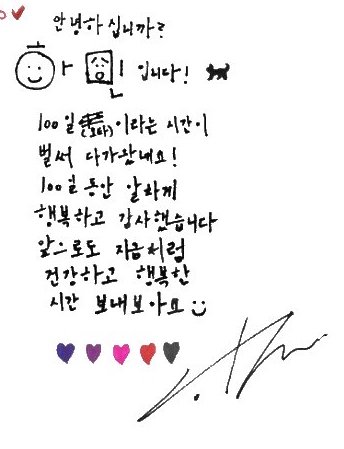 안녕하십니까?
하민입니다!
100일 (오타) 이라는 시간이
벌써 다가왔네요!
100일 동안 알차게
행복하고 감사했습니다
앞으로도 지금처럼
건강하고 행복한
시간 보내보아요